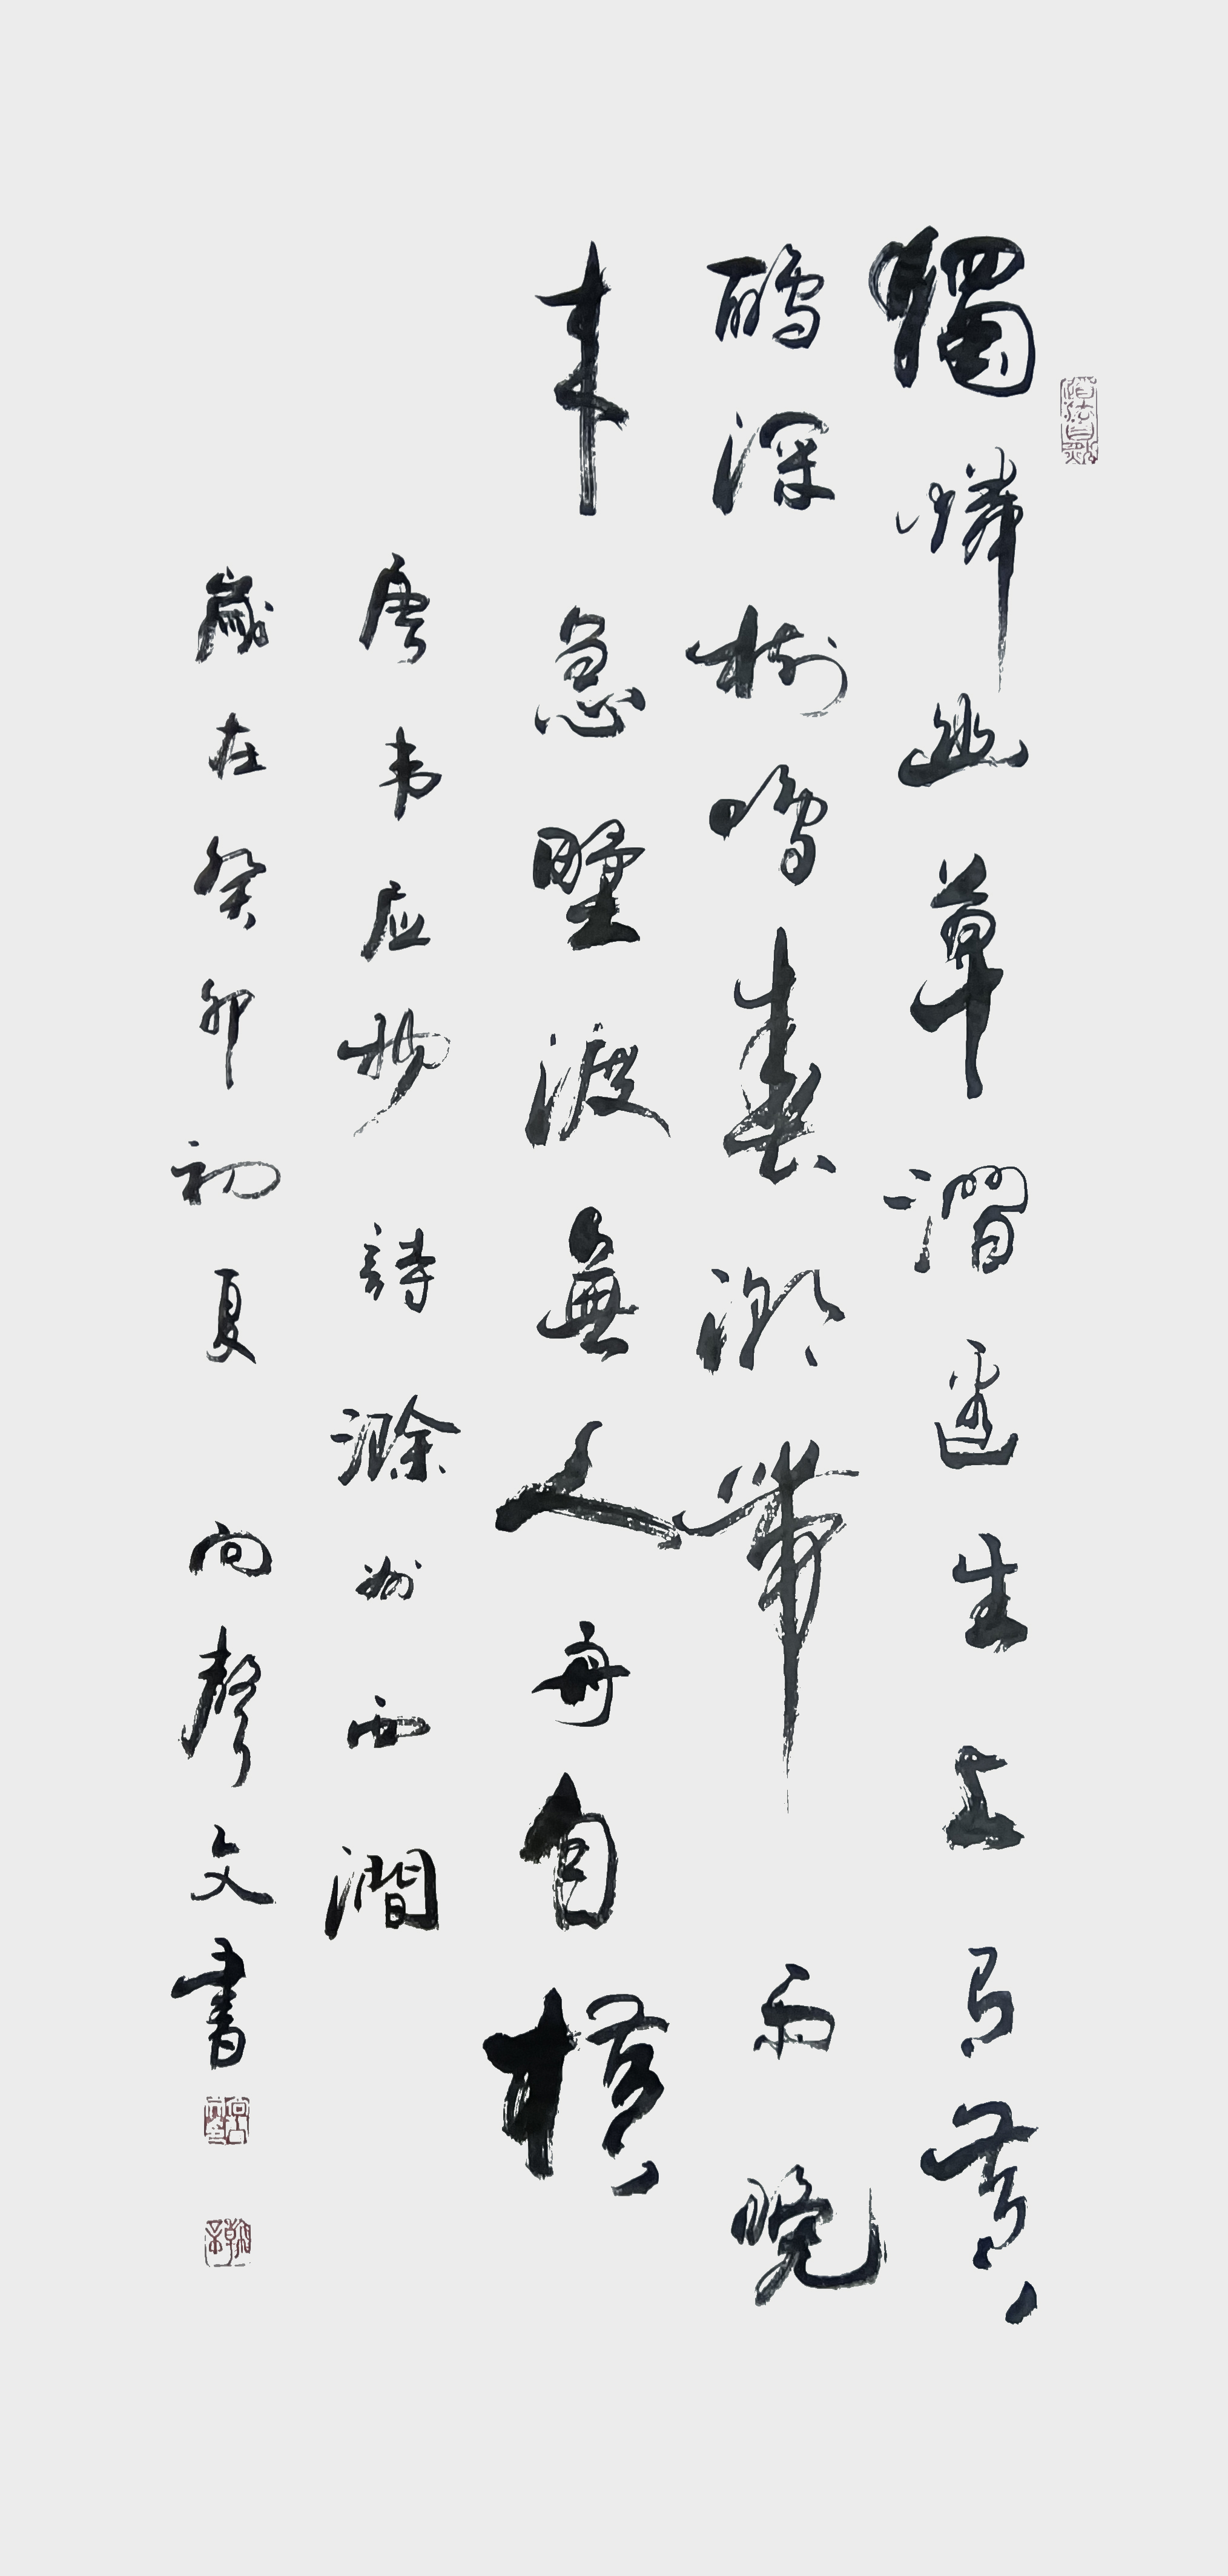 道法自然
獨憐幽草澗邊生上有黃
鸝深樹鳴春潮帶雨晚
来急野渡無人舟自橫
唐韦应物詩滁州西澗
歲在癸卯初夏 向聲文書